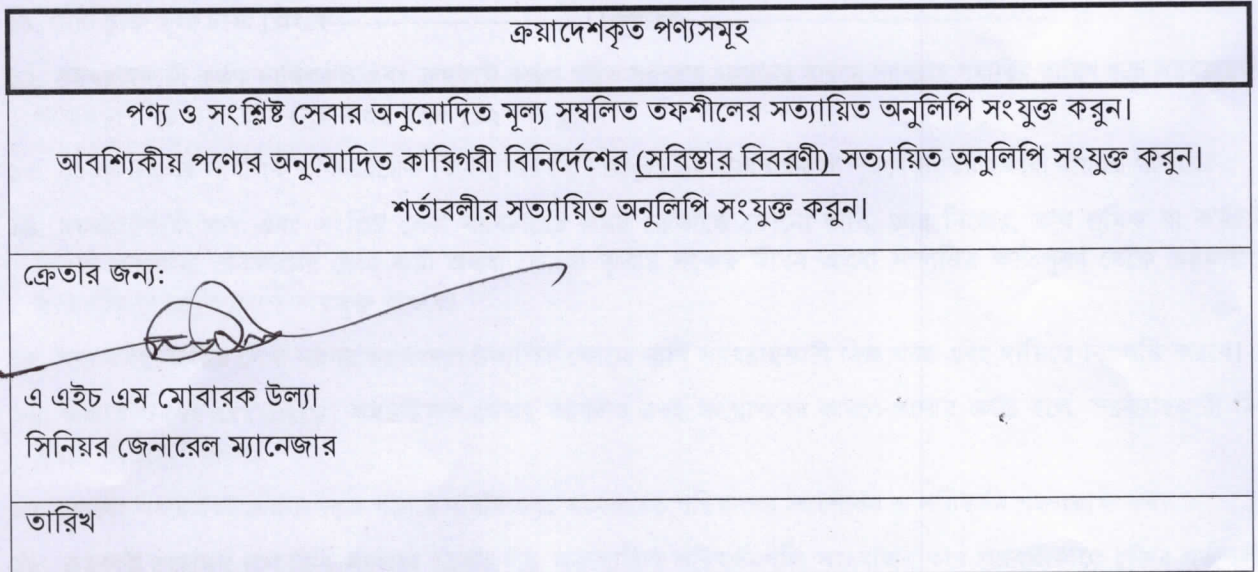 ক্রয়াদেশকৃত পণ্যসমূহ
পণ্য ও সংশ্লিষ্ট সেবার অনুমোদিত মূল্য সম্বলিত তফশীলের সত্যায়িত অনুলিপি সংযুক্ত করুন।
আবশ্যিকীয় পণ্যের অনুমোদিত কারিগরী বিনির্দেশের (সবিস্তার বিবরণী) সত্যায়িত অনুলিপি সংযুক্ত করুন।
শর্তাবলীর সত্যায়িত অনুলিপি সংযুক্ত করুন।
ক্রেতার জন্য:
এ এইচ এম মোবারক উল্যা
সিনিয়র জেনারেল ম্যানেজার
তারিখ